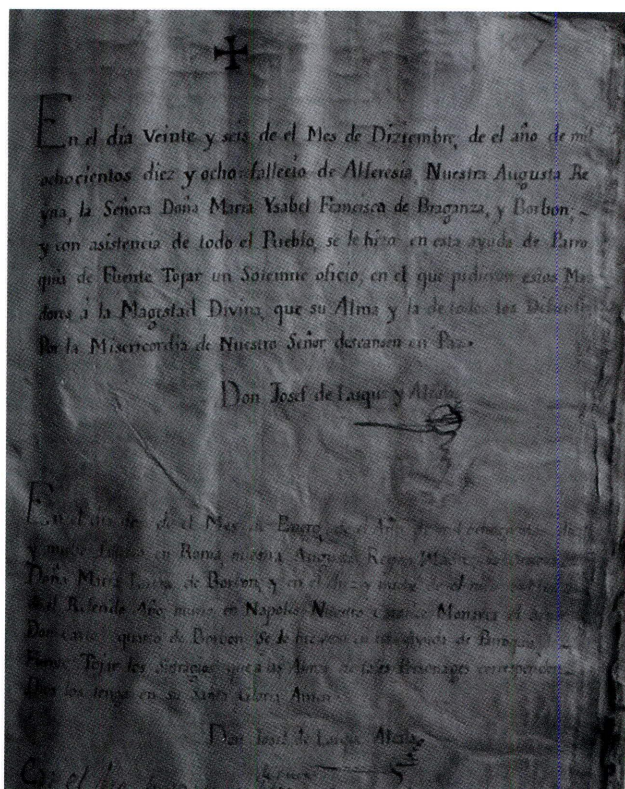 En el dia Veinte y seis de el Mes de Diziembre, de el año de mil
ochocientos diez y ocho fallecio de Alferesia, Nuestra Augusta Re
yna, la Señora Doña Maria Ysabel Francisca de Braganza, y Borbon;
y con asistencia de todo el Pueblo, se le hizo en esta ayuda de Parro
quia de Fuente Tojar un Solemne oficio, en el que pidieron estos
dores à la Magestad Divina, que su Alma y la de todos los Difuntos
Por la Misericordia de Nuestro Señor descansen en Paz.
Don Josef de Luque y Alcala
En el dia dos de el Mes de Enero, de el Año de mil ochocientos
y nueve fallecio en Roma nuestra Augusta Reyna Madre
Doña Maria Luisa de Borbon, y en el diez y nueve de el
de el Referido Año murio en Napoles Nuestro Monarca el
Don Carlos quarto de Borbon. Se le hicieron en esta ayuda de Parroquia
Fuente Tojar los Sufragios que a las Almas de tales Personages corresponden
Dios los tenga en su Santa Gloria Amen
Don Josef de Luque Alcala
En el dia